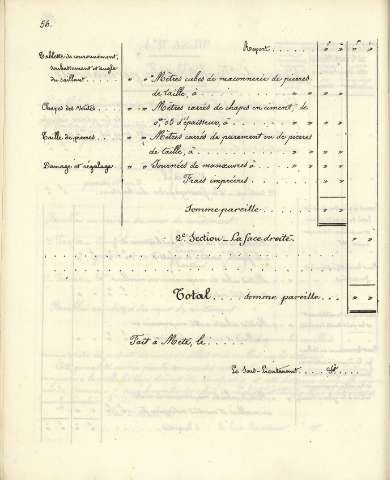 56.
Report
Tablette de couronnement,
soubassement et angle
du saillant
" " Mètres cubes de maçonnerie de pierres
de taille, à " "
Chapes des voûtes " " Mètres carrés de chapes en ciment, de
d'épaisseur, à " "
Taille de pierres " " Mètres carrés de parement vu de pierres
de taille, à " "
Damage et régalage " " Journées de manœuvres à " "
Frais imprévus " "
Somme pareille " "
2e Section _ La face droite " "
Total somme pareille " "
Fait à Metz, le
Le Sous-Lieutenant